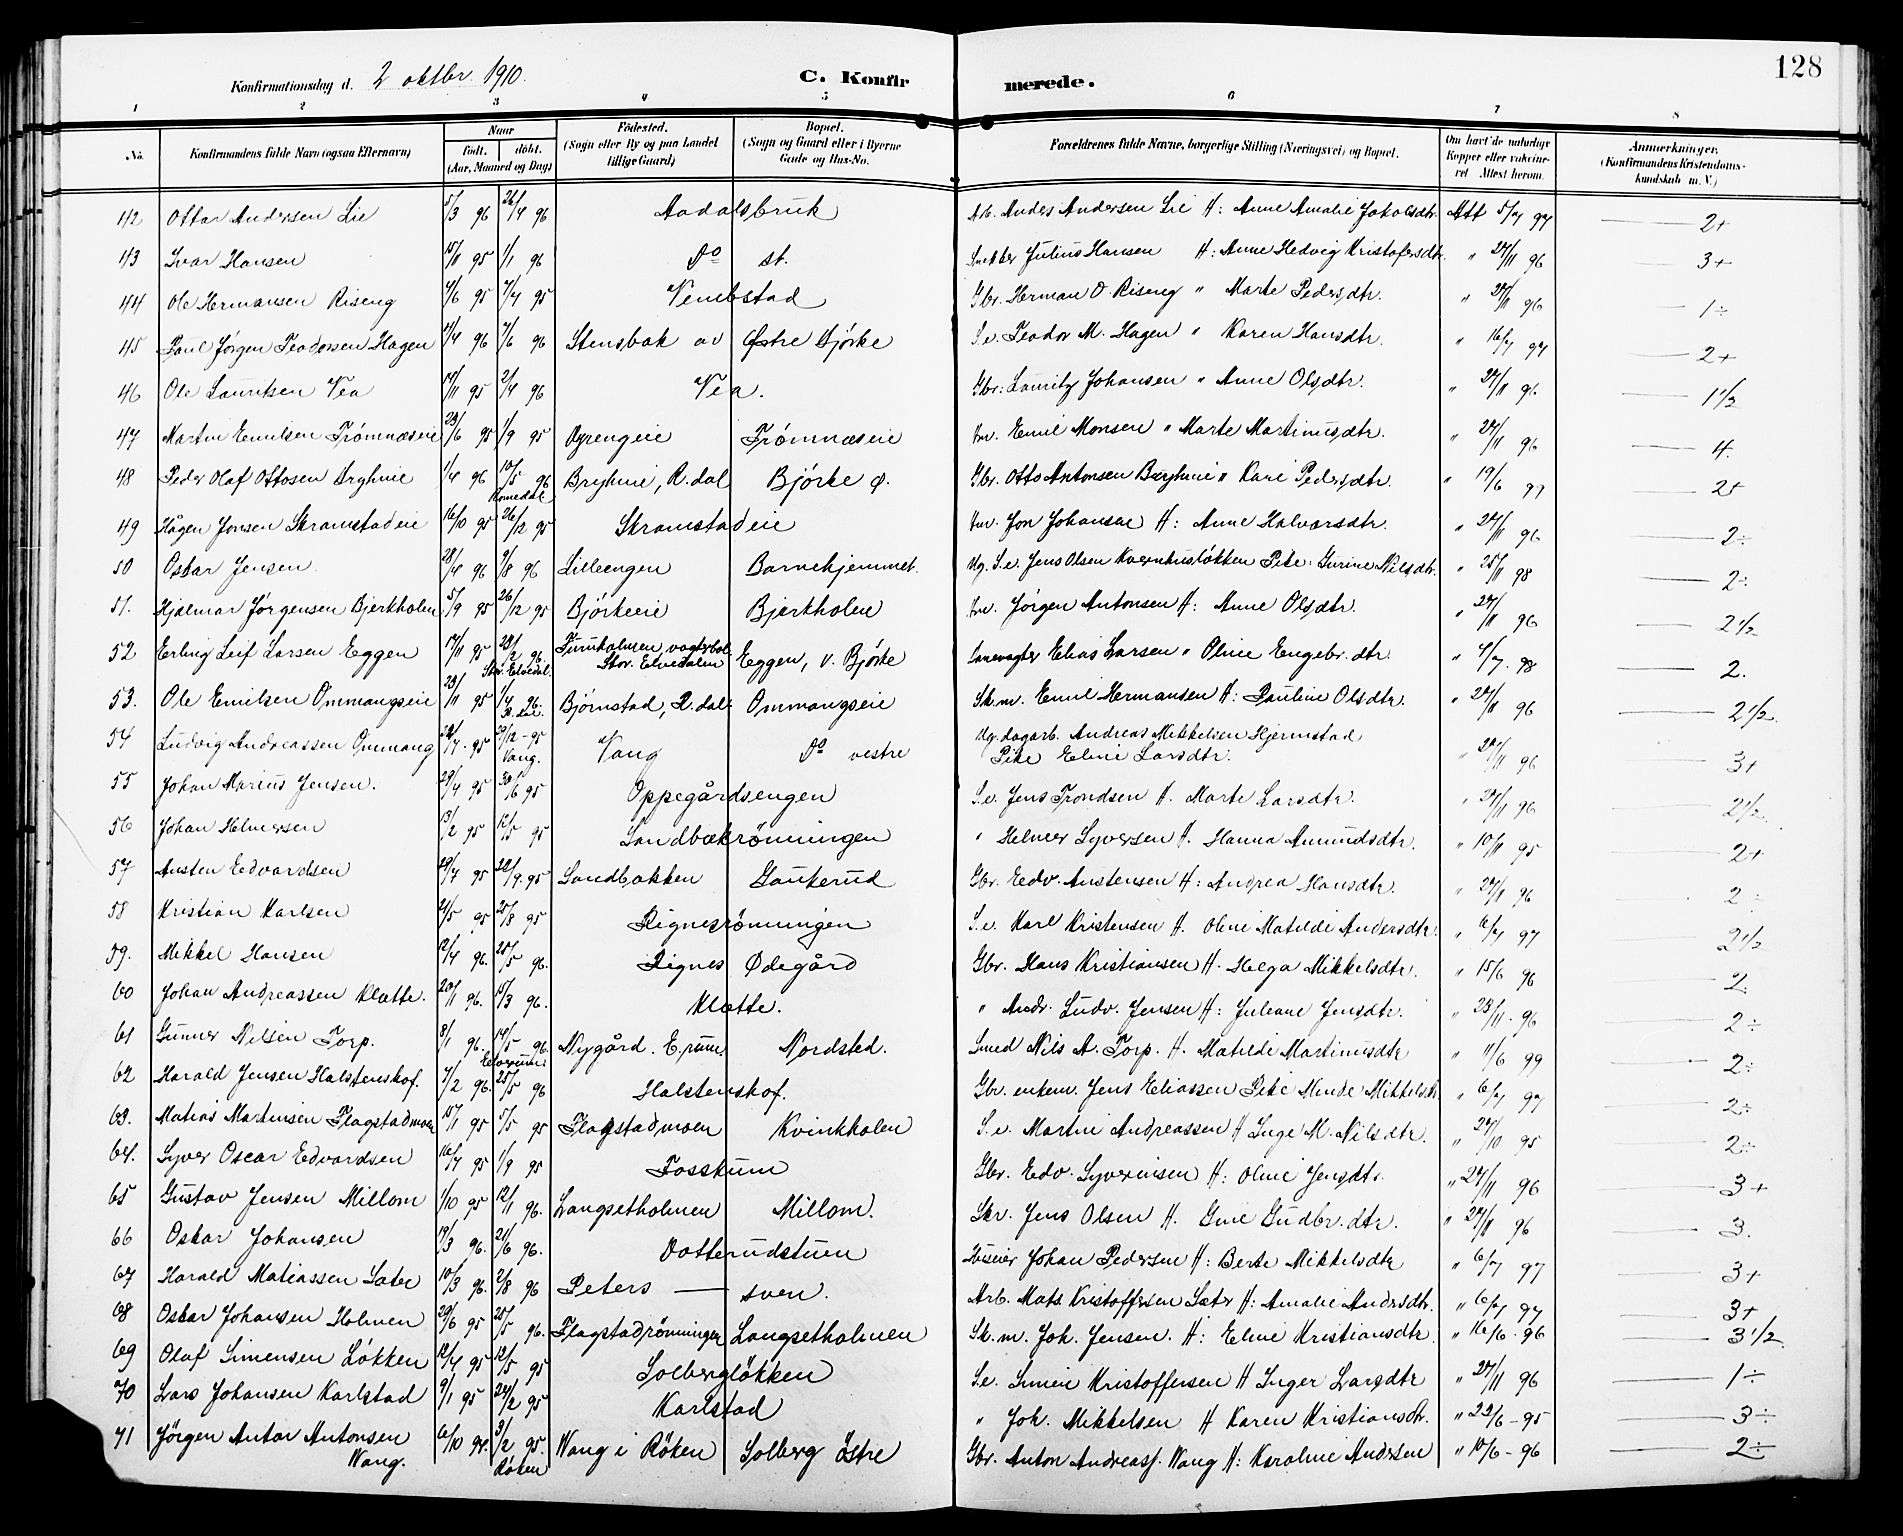 128
Konfirmationsdag d. 2 oktbr. 1910.
C. Konfirmerede.
1 2 3 4 5 6 7 8
No.
Konfirmandens fulde Navn (ogsaa Efternavn)
Naar
født. døbt.
(Aar, Maaned og Dag)
Födested.
(Sogn eller By og paa Landet tillige Gaard)
Bopæl.
(Sogn og Gaard eller i Byerne Gade og Hus-No.
Forældrenes fulde Navne, borgerlige Stilling (Næringsvei) og Bopæl.
Om havt de naturlige Kopper eller vakcineret Attest herom.
Anmærkninger.
(Konfirmandens Kristendomskundskab m. V.)
42 Ottar Andersen Lie 5/3 96 26/4 96 Aadalsbruk Arb. Anders Andersen Lie H: Anne Amalie Jakobsdtr. Att 5/7 97 2+
43 Ivar Hansen 15/11 95 1/1 96 do st. Snekker Julius Hansen H: Anne Hedvig Kristofersdtr. " 27/11 96 3+
44 Ole Hermansen Riseng 4/6 95 7/4 95 Venebstad Gbr. Herman O. Riseng " Marte Pedersdtr. " 27/11 96 1÷
45 Paul Jørgen Teodorsen Hagen 4/4 96 7/6 96 Stensbak av Østre Bjørke S.e. Teodor M. Hagen " Karen Hansdtr. " 16/7 97 2+
46 Ole Lauritsen Vea 17/11 95 2/4 96 Vea. Gbr: Lauritz Johansen " Anne Olsdtr. " 27/11 96. 1 1/2
47 Martin Emilsen Trømnæseie 23/6 95 1/9 95 Øyrengeie Trømnæseie Inv. Emil Monsen " Marte Martinusdtr. " 27/11 96 4.
48 Peder Olaf Ottosen Bryhnie 1/4 96 10/5 96 Bryhnie, R.dal Bjørke ø. Gbr. Otto Antonsen Bryhnie " Kari Pedersdtr. " 19/6 97 2+
Romedal
49 Hågen Jonsen Skramstadeie 16/10 95 26/12 95 Skramstadeie Inv. Jon Johansen H: Anne Halvorsdtr. " 27/11 96 2÷
50 Oskar Jensen 28/4 96 9/8 96 Lilleengen Barnehjemmet. Ug. S.e. Jens Olsen Kvernhusløkken Pike: Gurine Nilsdtr. " 25/11 98 2÷
51. Hjalmar Jørgensen Bjerkholen 5/9 95 26/12 95 Bjørkeeie Bjerkholen Inv. Jørgen Antonsen H: Anne Olsdtr. " 27/11 96 2 1/2
52 Erling Leif Larsen Eggen 17/11 95 23/2 96. Furuholmen, vogterbol Stor. Elvedalen Eggen, v. Bjørke Banevogter Elias Larsen " Oline Engebr.dtr. " 4/7. 98 2.
Stor. Elvedal.
53. Ole Emilsen Ommangseie 23/11 95 1/4 96. Bjørnstad, R.dal. Ommangseie Sk.m. Emil Hermansen H: Pauline Olsdtr. " 27/11 96 2 1/2
R.dal.
54 Ludvig Andreassen Ommang 24/7. 95 29/12-95 Vang do vestre Ug. dagarb. Andreas Mikkelsen Hjermstad
Vang. Pike Eline Larsdtr. " 27/11 96 3+
55 Johan Marius Jensen. 29/4 95 30/6 95 Oppegårdsengen S.e. Jens Trondsen H. Marte Larsdtr. " 27/11 96 2 1/2
56 Johan Helmersen 13/2 95 12/5 95 Sandbækrønningen " Helmer Syversen H. Hanna Amundsdtr. " 10/11 95 2+
57 Austen Edvardsen 29/7 95 22/9. 95 Sandbakken Gaukerud Gbr. Edv. Austensen H: Andrea Hansdtr. " 27/11 96 2÷
58 Kristian Karlsen 21/5 95 25/8 95 Rignesrønningen S.e. Karl Kristensen H. Oline Matilde Andersdtr. " 6/7 97 2 1/2
59. Mikkel Hansen 12/4 96. 25/5 96. Rignes Ødegård Gbr. Hans Kristiansen H. Helga Mikkelsdtr. " 15/6 96 2.
60 Johan Andreassen Klætte. 20/1 96. 15/3 96. Klætte. " Andr. Ludv. Jensen H: Juliane Jensdtr. " 23/11. 96 2÷
61 Gunner Nilsen Torp. 8/1 96. 14/5 96. Nygård. E.rum. Nordsted. Smed Nils A. Torp. H. Matilde Martinusdtr " 11/6 99 2÷
Elverum.
62 Harald Jensen Halstenshof. 7/2 96. 25/5 96 Halstenshof. Gbr. enkem. Jens Eliassen Pike Minde Mikkelsdtr. " 6/7 97 2÷
63. Matias Martinsen Flagstadmoen 15/1 95 5/5 95 Flagstadmoen Kvinkholen S.e. Martin Andreassen H Inge M. Nilsdtr. " 27/10 95 2÷
64. Syver Oscar Edvardsen 16/7 95 1/9 95 Fosskum Gbr. Edv. Syverinsen H: Oline Jensdtr. " 27/11 96 3+
65 Gustav Jensen Millom 1/10 95 12/1 96. Langsetholmen Millom. Skr. Jens Olsen H. Gine Gudbr.dtr. " 27/11 96 3.
66 Oskar Johansen 19/3 96. 21/6 96. Votterudstuen Huseier Johan Pedersen H: Berte Mikkelsdtr " 6/7 97 3+
67 Harald Matiassen Sæter 10/3 96. 2/8 96 Peterssven. Arb. Mats Kristoffersen Sæter H: Amalie Andrsdtr. " 6/7 97 3+
68 Oskar Johansen Holmen 29/6 95 25/5 96. Flagstadrønningen Langsetholmen Sk.m. Joh. Jensen. H: Eline Kristiansdtr. " 16/6. 96 3 1/2
69 Olaf Simensen Løkken 12/4 95 12/5 95 Solbergløkken S.e. Simen Kristoffersen H Inger Larsdtr " 27/11 96 1÷
70 Lars Johansen Karlstad 9/1 95 24/2 95 Karlstad " Joh. Mikkelsen H Karen Kristiansdtr. " 23/6-95 3÷
71 Jörgen Anton Antonsen Wang. 6/10 94. 3/2 95. Wang i Röken Solberg Östre Gbr. Anton Andreass. Wang H: Karoline Andersen " 10/6-96 2÷
Röken